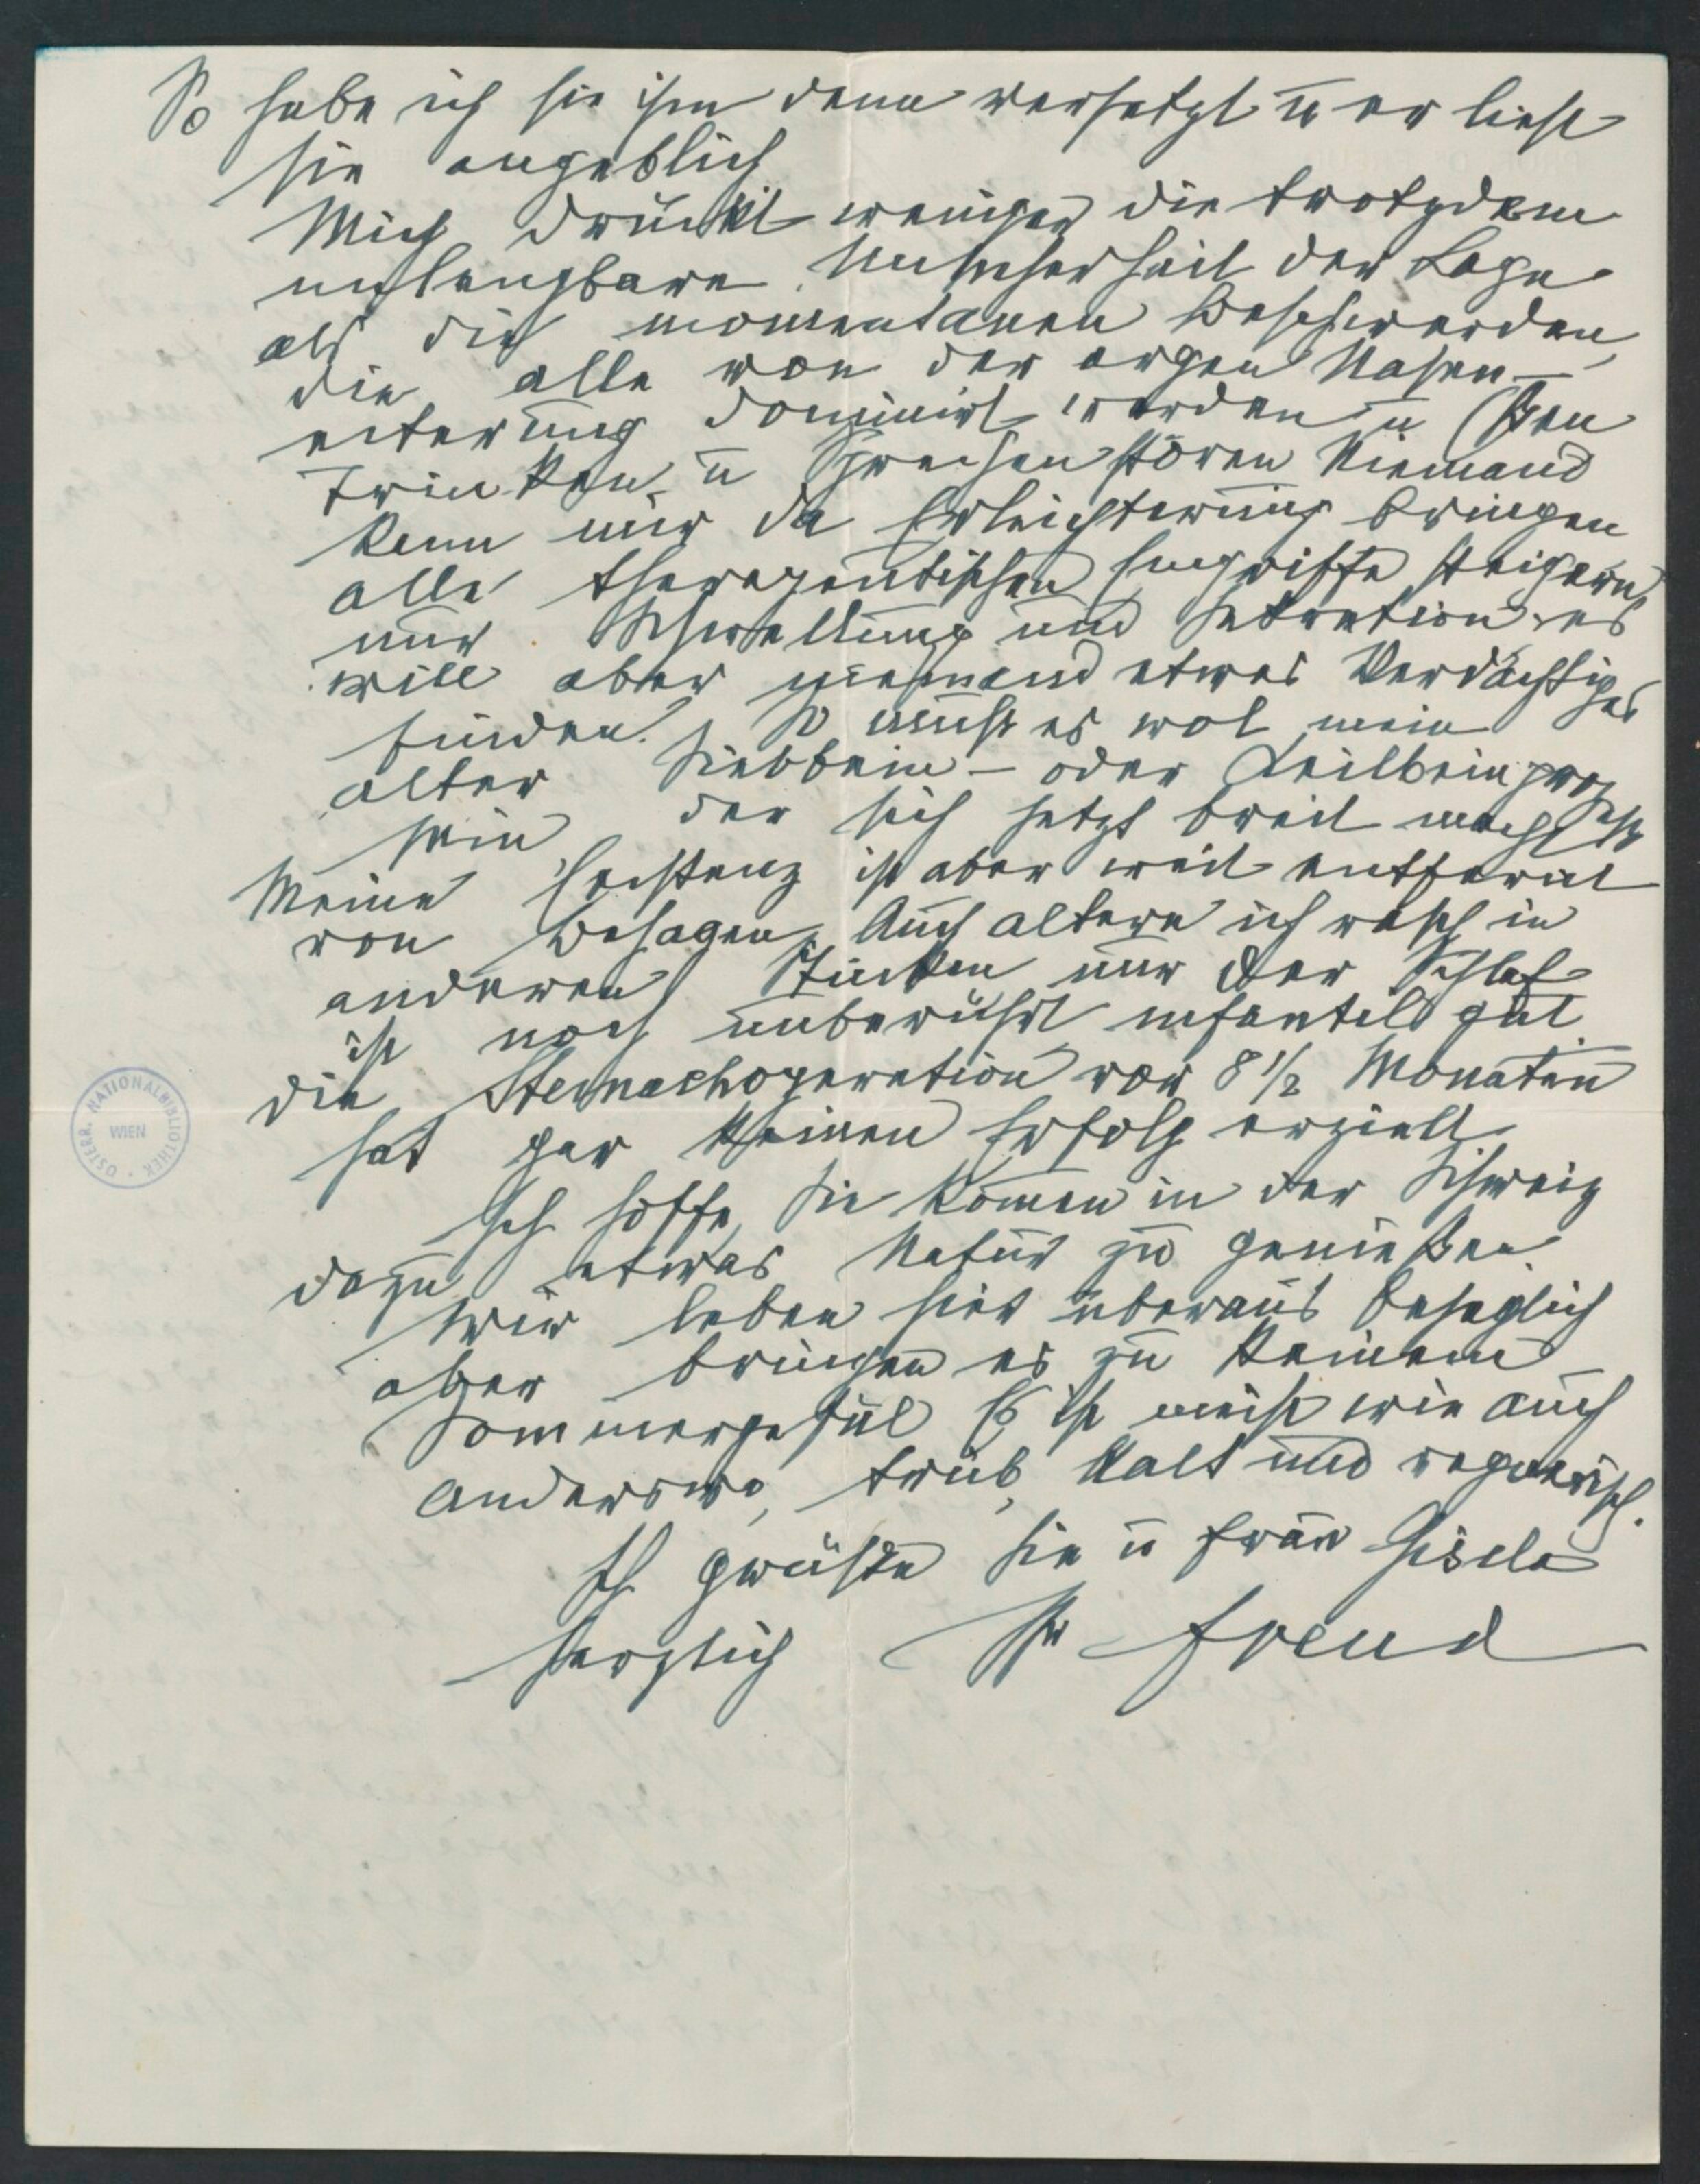 So habe ich sie ihm denn versetzt u er liest
sie angeblich
Mich drückt weniger die trotzdem
unleugbare Unsicherheit der Lage
als die momentanen Beschwerden,
die alle von der argen Nasen-
eiterung dominirt werden u Essen
Trinken, u Sprechen stören Niemand
kann mir da Erleichterung bringen
alle therapeutischen Eingriffe steigern
nur Schwellung und Sekretion es
will aber niemand etwas Verdächtiges
finden. So muß es wol mein
alter Siebbein- oder Keilbeinprozeß
sein der sich jetzt breit macht
Meine Existenz ist aber weit entfernt
von Behagen, Auch altere ich rasch in
anderen Stücken nur der Schlaf
ist noch unberührt infantil gut
die Steinachoperation vor 8 1/2 Monaten
hat gar keinen Erfolg erzielt.
Ich hoffe, Sie komen in der Schweiz
dazu etwas Natur zu genießen.
Wir leben hier überaus behaglich
aber bringen es zu keinem
Sommergefül Es ist meist wie auch
anderswo, trüb, kalt und regnerisch.
Ich grüße Sie u Frau Gisela
herzlich Ihr Freud
ÖSTERR. NATIONALBIBLIOTHEK · WIEN